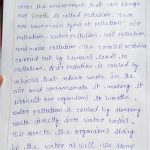 into the environment that can harm
our Earth is called pollution. There
are various types of pollution : air
pollution, water pollution, soil pollution,
and noise pollution. The harmful activities
carried out by humans lead to
pollution. Air pollution is caused by
vehicles that release smoke in the
air and contaminate it making it
difficult for organisms to breathe.
Water pollution is caused by dumping
waste directly into water bodies.
This affects the organisms living
in the water as well. We dump